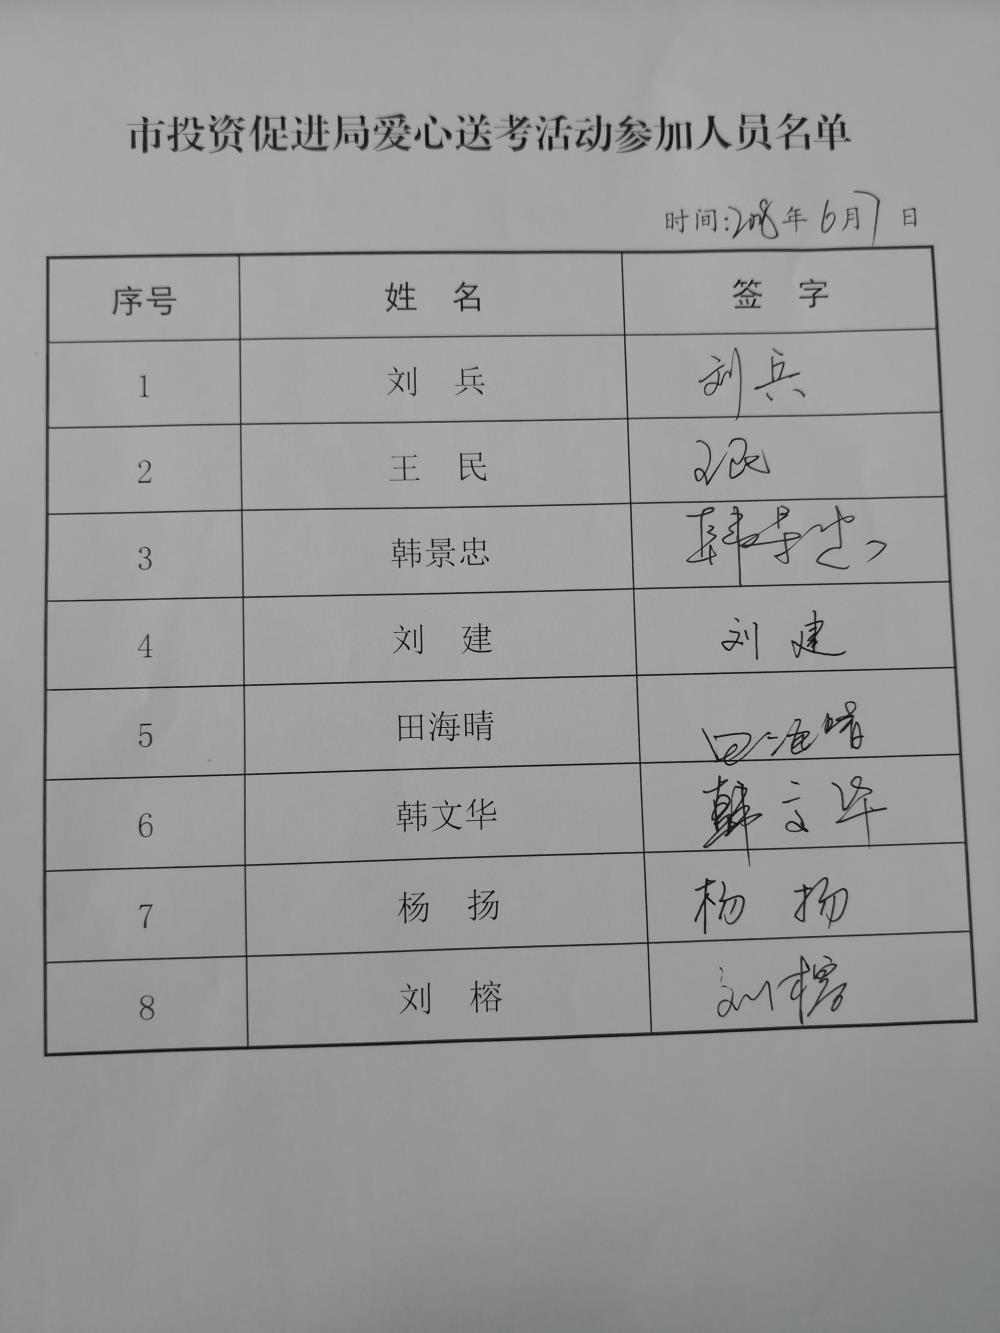 市投资促进局爱心送考活动参加人员名单
时间:2018年6月7日
序号 姓 名 签 字
1 刘 兵 刘兵
2 王 民 王民
3 韩景忠 韩景忠
4 刘 建 刘建
5 田海晴 田海晴
6 韩文华 韩文华
7 杨 扬 杨扬
8 刘 榕 刘榕